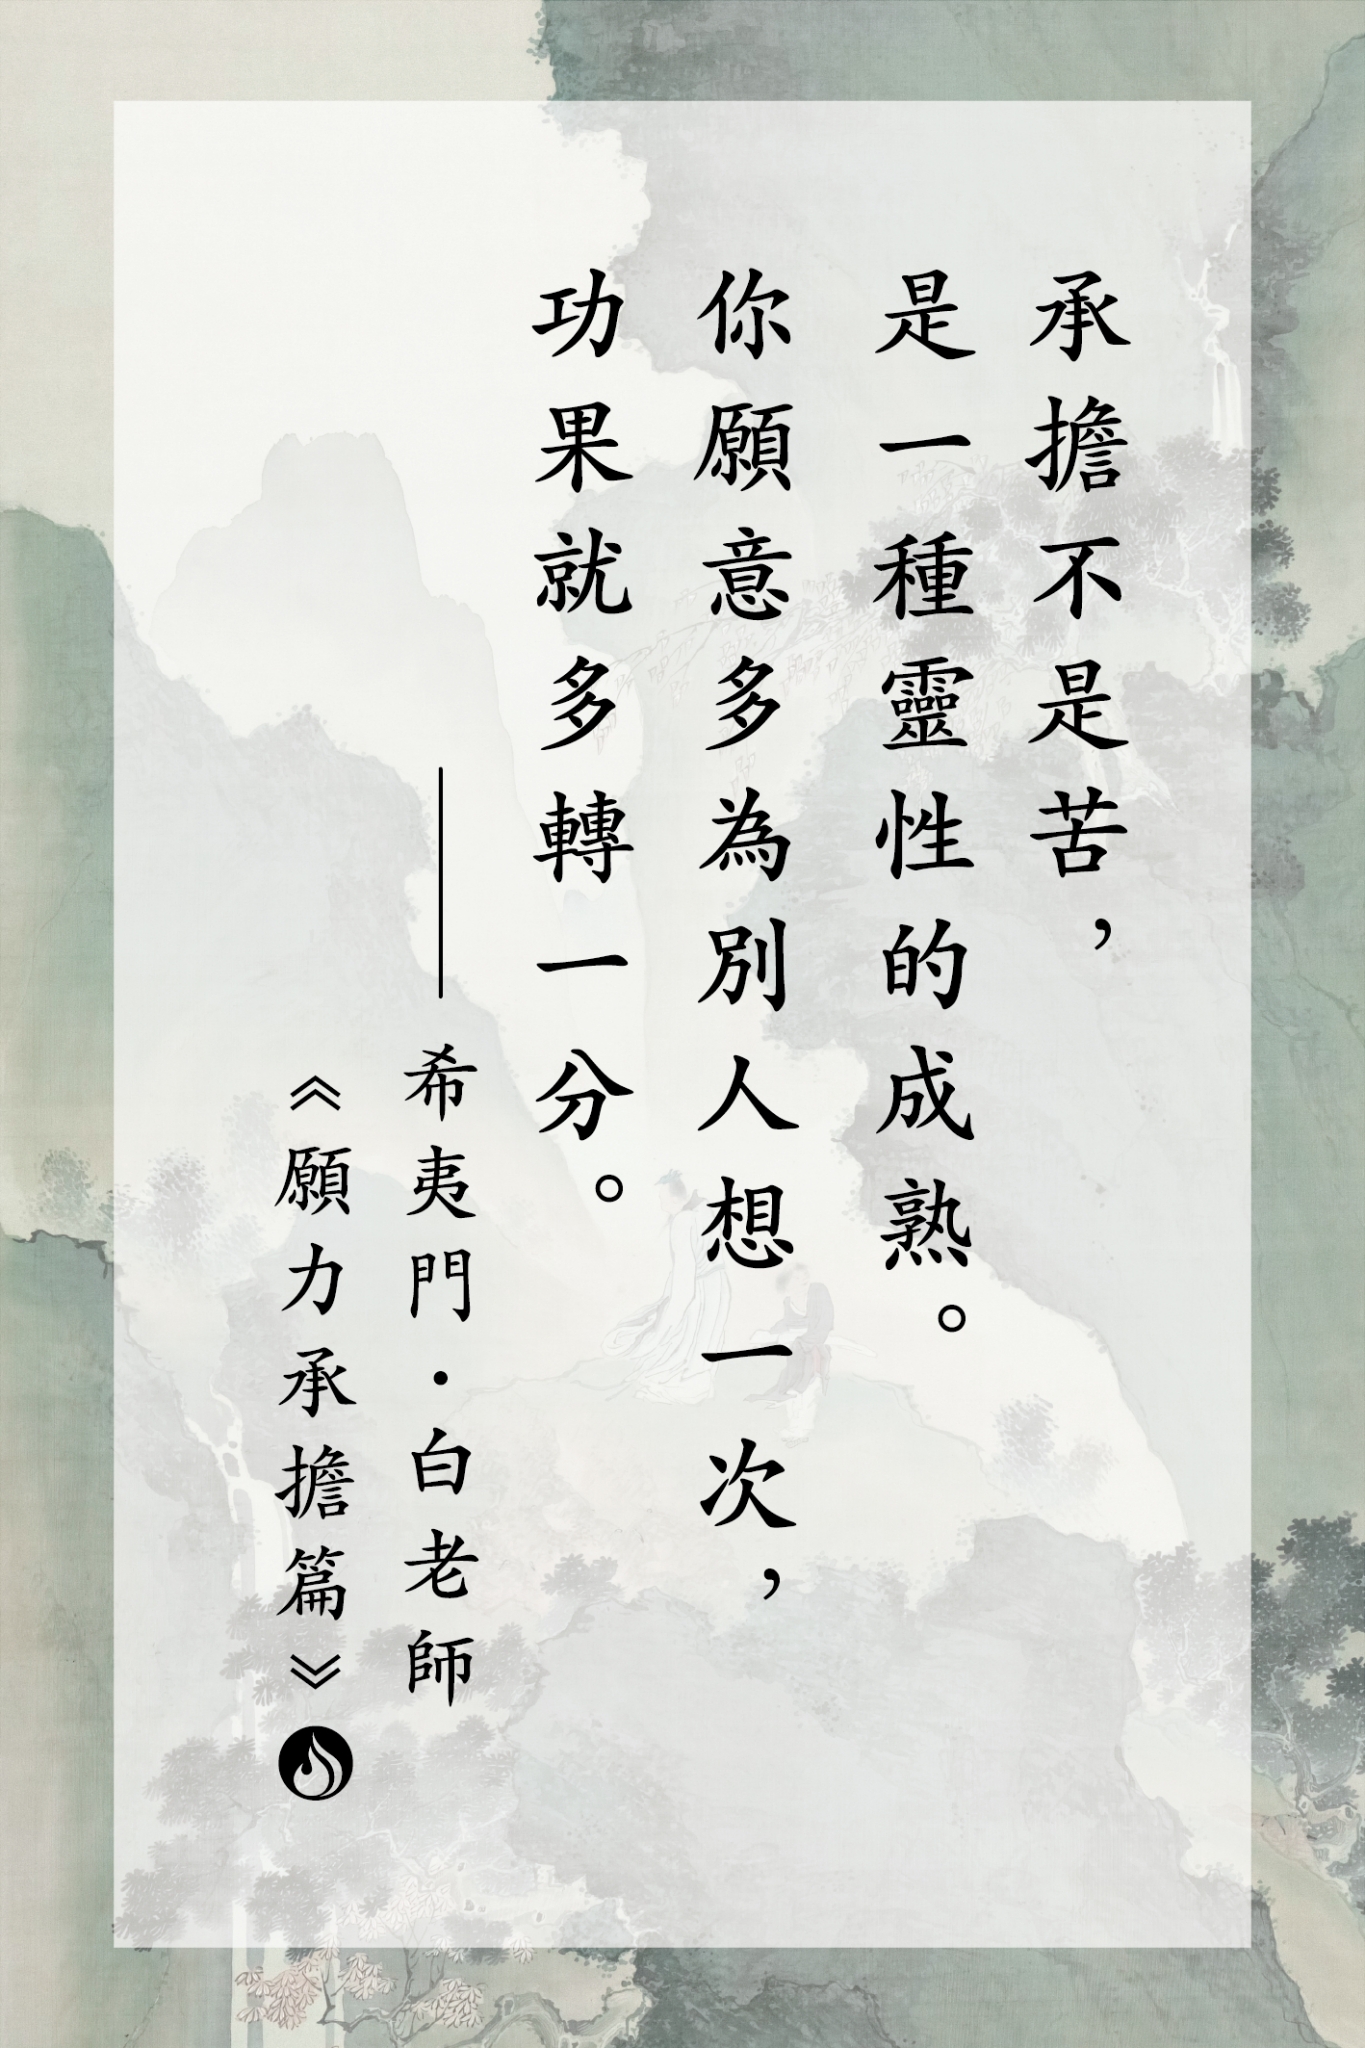 承擔不是苦，
是一種靈性的成熟。
你願意多為別人想一次，
功果就多轉一分。
——希夷門·白老師
《願力承擔篇》